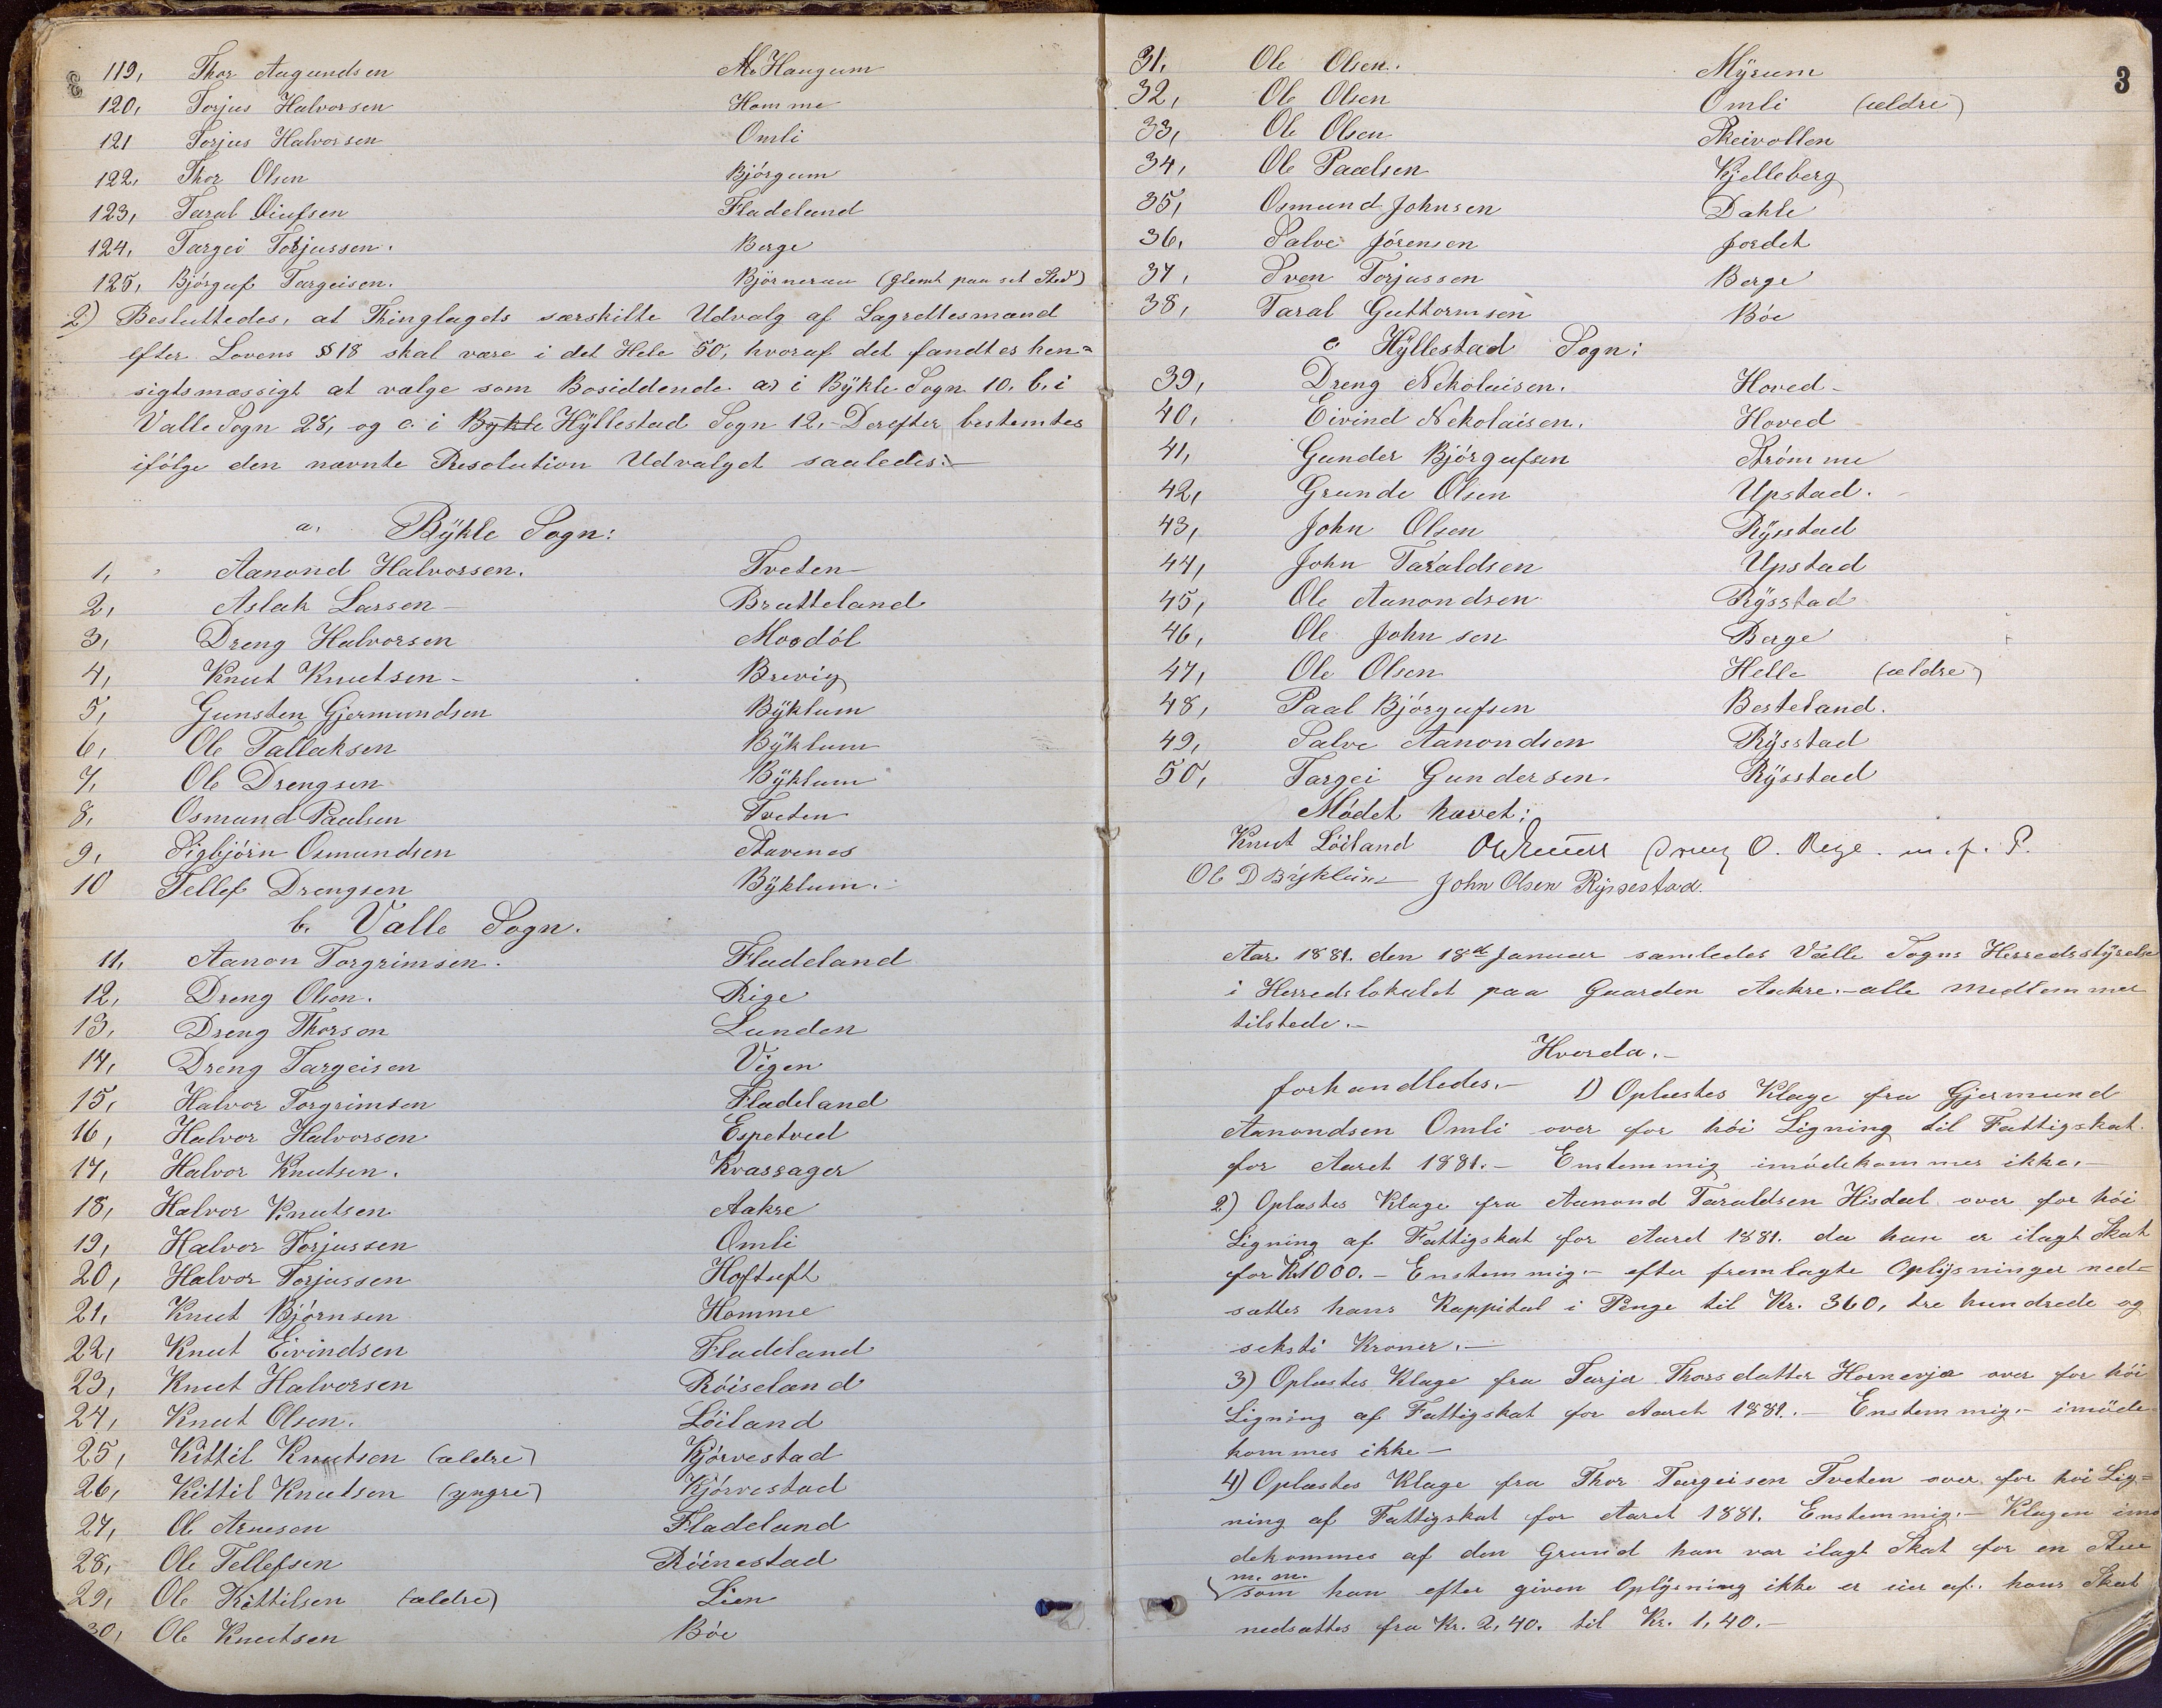 119, Thor Aagundsen M. Haugum
120, Torjus Halvorsen Homme
121 Torjus Halvorsen Omli
122, Thor Olsen Bjørgum
123, Taral Oiufsen Fladeland
124, Targei Torjussen. Berge
125, Bjørguf Targeisen. Björneraa (glemt paa set Sted)
2) Besluttedes, at Thinglagets særskilte Udvalg af Lagrettesmænd
efter Lovens §§ 18 skal være i det Hele 50, hvoraf det fandtes hen=
sigtsmæssigt at vælge som Bosiddende a, i Bÿkle Sogn 10. b. i
Valle Sogn 28, og c. i Bykle Hÿllestad Sogn 12. - Derefter bestemtes
ifølge den nævnte Resolution Udvalget saaledes: -
a, Bÿkle Sogn:
1, Aanond Halvorsen. Tveten
2, Aslak Larsen - Bratteland
3, Dreng Halvorsen Mosdøl
4, Knut Knutsen - Brevig
5, Gunsten Gjermundsen Bÿklum
6, Ole Tallaksen Bÿklum
7, Ole Drengsen Bÿklum
8, Osmund Paalsen Tveten
9, Sigbjørn Osmundsen Stavenes
10 Tellef Drengsen Bÿklum.
b. Valle Sogn.
11, Aanon Torgrimsen. Fladeland
12, Dreng Olsen. Rige
13, Dreng Thorson Lunden
14, Dreng Targeisen Vigen
15, Halvor Torgrimsen Fladeland
16, Halvor Halvorsen Espetved
17, Halvor Knutsen. Kvassager
18, Halvor Knutsen Aakre
19, Halvor Torjussen Omli
20, Halvor Torjussen Hoftuft
21, Knut Bjørnsen Homme
22, Knut Eivindsen Fladeland
23, Knut Halvorsen Röiseland
24, Knut Olsen. Löiland
25, Kittil Knutsen (ældre) Kjørvestad
26, Kittil Knutsen (yngre) Kjørvestad
27, Ole Arneson Fladeland
28, Ole Tellefsen Röinestad
29, Ole Kittilsen (ældre) Lien
30, Ole Knutsen Bøe
3
31, Ole Olsen. Mÿrum
32, Ole Olsen Omli (ældre)
33, Ole Olsen Skeivollen
34, Ole Paalsen Kjelleberg
35, Osmund Johnsen Dahle
36, Salve Jörensen Jordet
37, Sven Torjussen Berge
38, Taral Guttormsen Bøe
c. Hÿllestad Sogn:
39, Dreng Nekolaisen. Hoved -
40, Eivind Nekolaisen. Hoved
41, Gunder Bjørgufsen Strömme
42, Grunde Olsen Upstad.
43, John Olsen Rÿsstad
44, John Taraldsen Upstad
45, Ole Aanondsen Rÿsstad
46, Ole Johnsen Berge
47, Ole Olsen Helle (ældre)
48, Paal Bjørgufsen Besteland.
49, Salve Aanondsen Rÿsstad
50, Targei Gundersen. Rÿsstad
Mødet hævet:
Knut Löiland Dreng O. Rige. m. f. P.
Ole D Bÿklum John Olsen Rÿssestad.
Aar 1881. den 18de Januar samledes Valle Sogns Herredsstÿrelse
i Herredslokalet paa Gaarden Aakre. - alle Medlemmer
tilstede. -
Hvorda. -
forhandledes. - 1) Oplæstes Klage fra Gjermund
Aanondsen Omli over for høi Ligning til Fattigskat
for Aaret 1881. - Enstemmig imødekommes ikke. -
2) Oplæstes Klage fra Aanond Taraldsen Hisdal over for høi
Ligning af Fattigskat for Aaret 1881. da han er ilagt Skat
for Kr 1000. - Enstemmig. - efter fremlagte Oplÿsninger ned=
sættes hans Kappital i Penge til Kr. 360, tre hundrede og
seksti Kroner. -
3) Oplæstes Klage fra Tarjer Thorsdatter Hornevja over for høi
Ligning af Fattigskat for Aaret 1881. - Enstemmig. - imøde
kommes ikke -
4) Oplæstes Klage fra Thor Targeisen Tveten over for høi Lig=
ning af Fattigskat for Aaret 1881. Enstemmig. - Klagen imø
dekommes af den Grund han var ilagt Skat for en Stue
m. m.
som han efter given Oplÿsning ikke er eier af. hans Skat
nedsættes fra Kr. 2,40. til Kr. 1,40. -